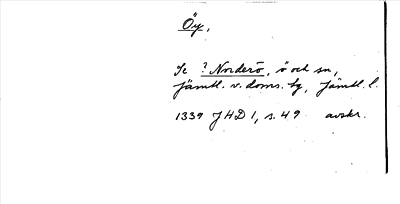 Öy,
Se ? Norderö, ö och sn,
Jämtl. v. doms. tg, Jämtl. l.
1339 JHD 1, s. 49 avskr.